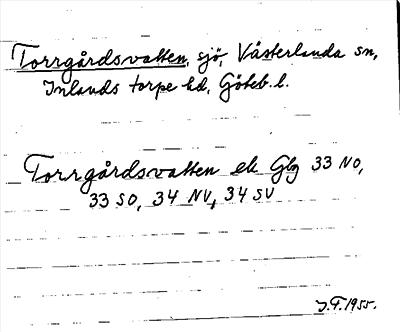 Torrgårdsvatten, sjö, Västerlanda sn,
Inlands torpe hd, Göteb. l.
Torrgårdsvatten ek Gbg 33 NO,
33 SO, 34 NV, 34 SV
J.F. 1955.